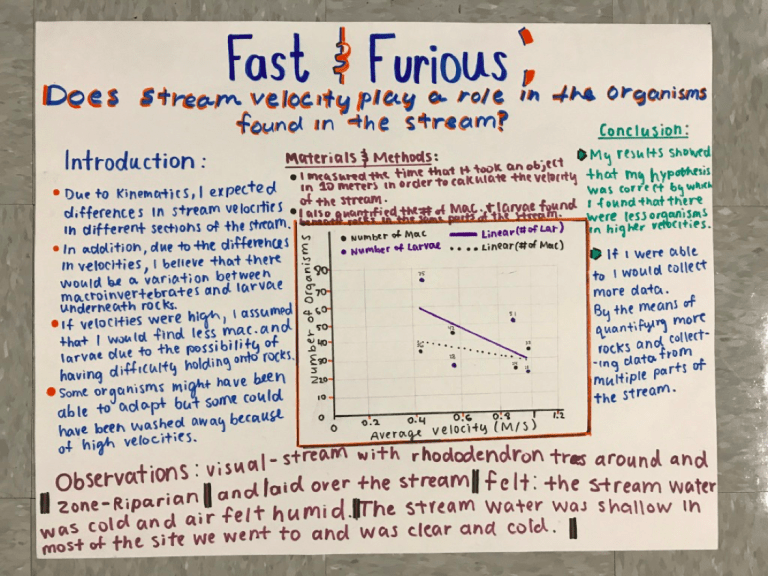 Fast & Furious:
Does stream velocity play a role in the organisms
found in the stream?
Introduction:
• Due to Kinematics, I expected
differences in stream velocities
in different sections of the stream.
• In addition, due to the differences
in velocities, I believe that there
would be a variation between
macroinvertebrates and larvae
underneath rocks.
• If velocities were high, I assumed
that I would find less mac. and
larvae due to the possibility of
having difficulty holding onto rocks.
• Some organisms might have been
able to adapt but some could
have been washed away because
of high velocities.
Materials & Methods:
• I measured the time that it took an object
in 10 meters in order to calculate the velocity
of the stream.
• I also quantified the # of Mac. & larvae found
underneath rocks in the same parts of the stream.
• Number of Mac
• Number of Larvae
Linear (# of Lar)
Linear (# of Mac)
Number of Organisms
90
70
60
50
40
30
20
10
0
0 0.2 0.4 0.6 0.8 1 1.2
Average Velocity (M/S)
Conclusion:
My results showed
that my hypothesis
was correct by which
I found that there
were less organisms
in higher velocities.
If I were able
to I would collect
more data.
By the means of
quantifying more
rocks and collect-
ing data from
multiple parts of
the stream.
Observations: visual-stream with rhododendron tres around and
zone-Riparian and laid over the stream felt: the stream water
was cold and air felt humid. The stream water was shallow in
most of the site we went to and was clear and cold.